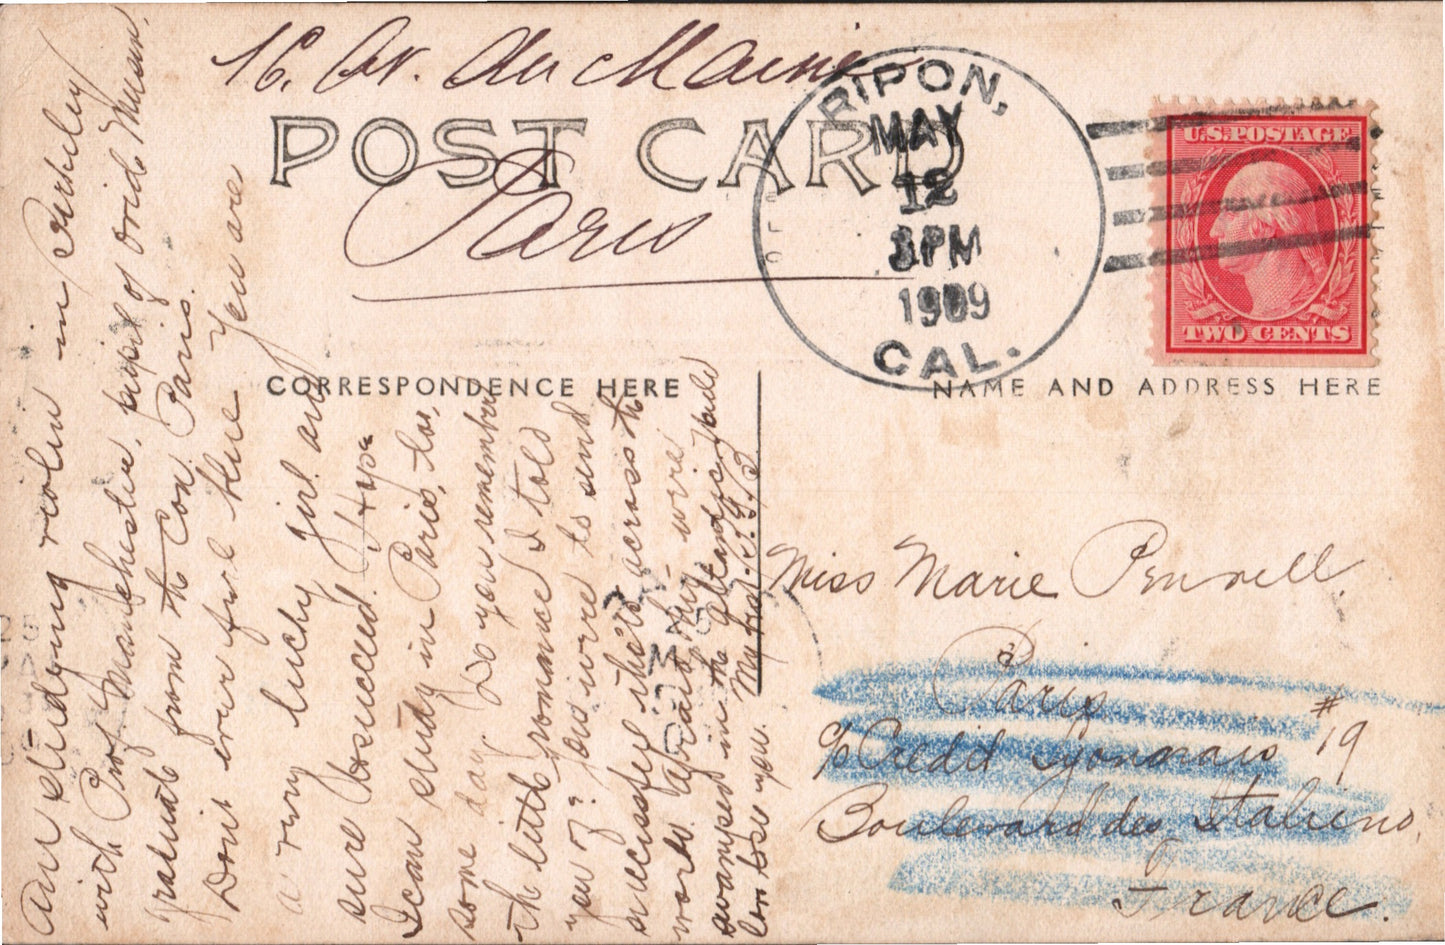 16. Av. du Maine
POST CARD
Paris
RIPON,
MAY
12
3PM
1909
CAL.
U.S. POSTAGE
TWO CENTS
CORRESPONDENCE HERE
NAME AND ADDRESS HERE
Am studying violin in Berkeley
with Prof Manchester, pupil of Ovide Musin
graduate from the Con. Paris.
Dont ever feel blue You are
a very lucky girl and
sure to succeed. I hope
I can study in Paris, too,
some day. Do you remember
the little romance I told
you of? his wire to send
successful the across the
world. Afraid they were
swamped in the Atlantic, Yours
My love to you.
Miss Marie Powell
Paris
c/o Credit Lyonnais #19
Boulevard des Italiens,
France.